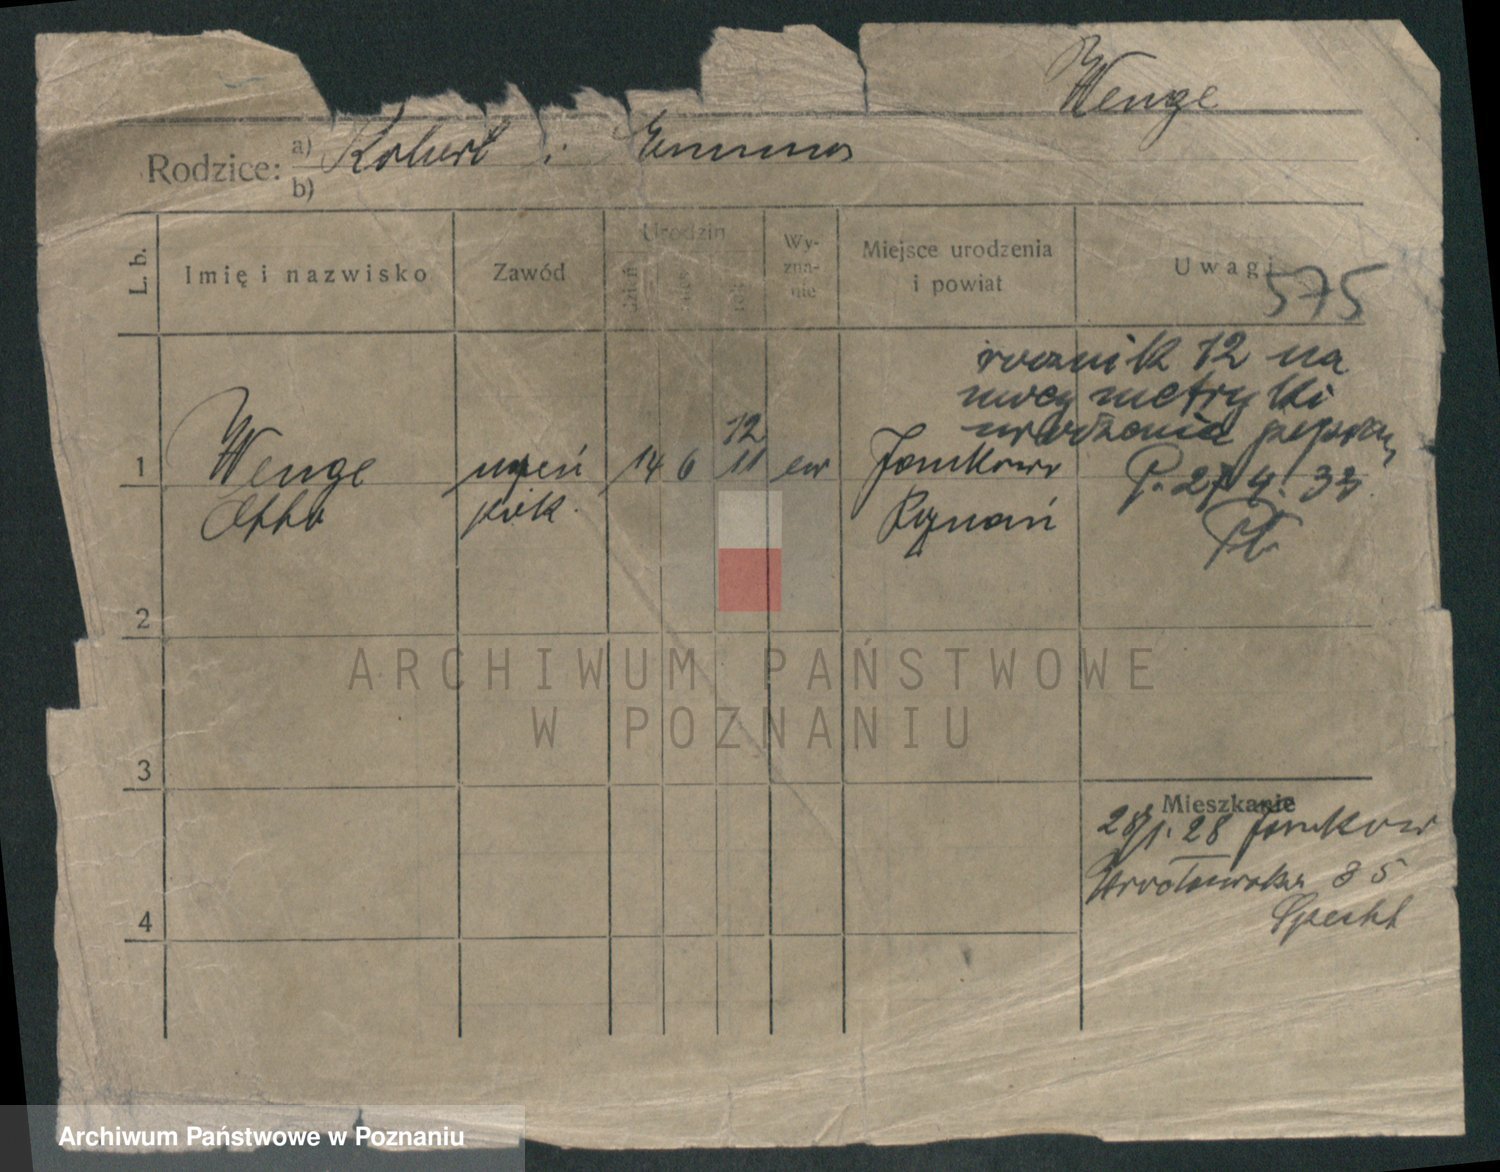 Wenge
Rodzice: a) Robert i Emma
b)
L. b. Imię i nazwisko Zawód Urodzin dzień rok Wy-zna-nie Miejsce urodzenia i powiat Uwagi
575
rocznik 12 na
mocy metryki
urodzenia
P. 27. 4. 33
12
1 Wenge uczeń 14 6 11 ew Jankowo
Otto piek. Poznań
2
ARCHIWUM PAŃSTWOWE
W POZNANIU
3
Mieszkanie
28/1. 28
Wrocławska 35
Specht
4
Archiwum Państwowe w Poznaniu